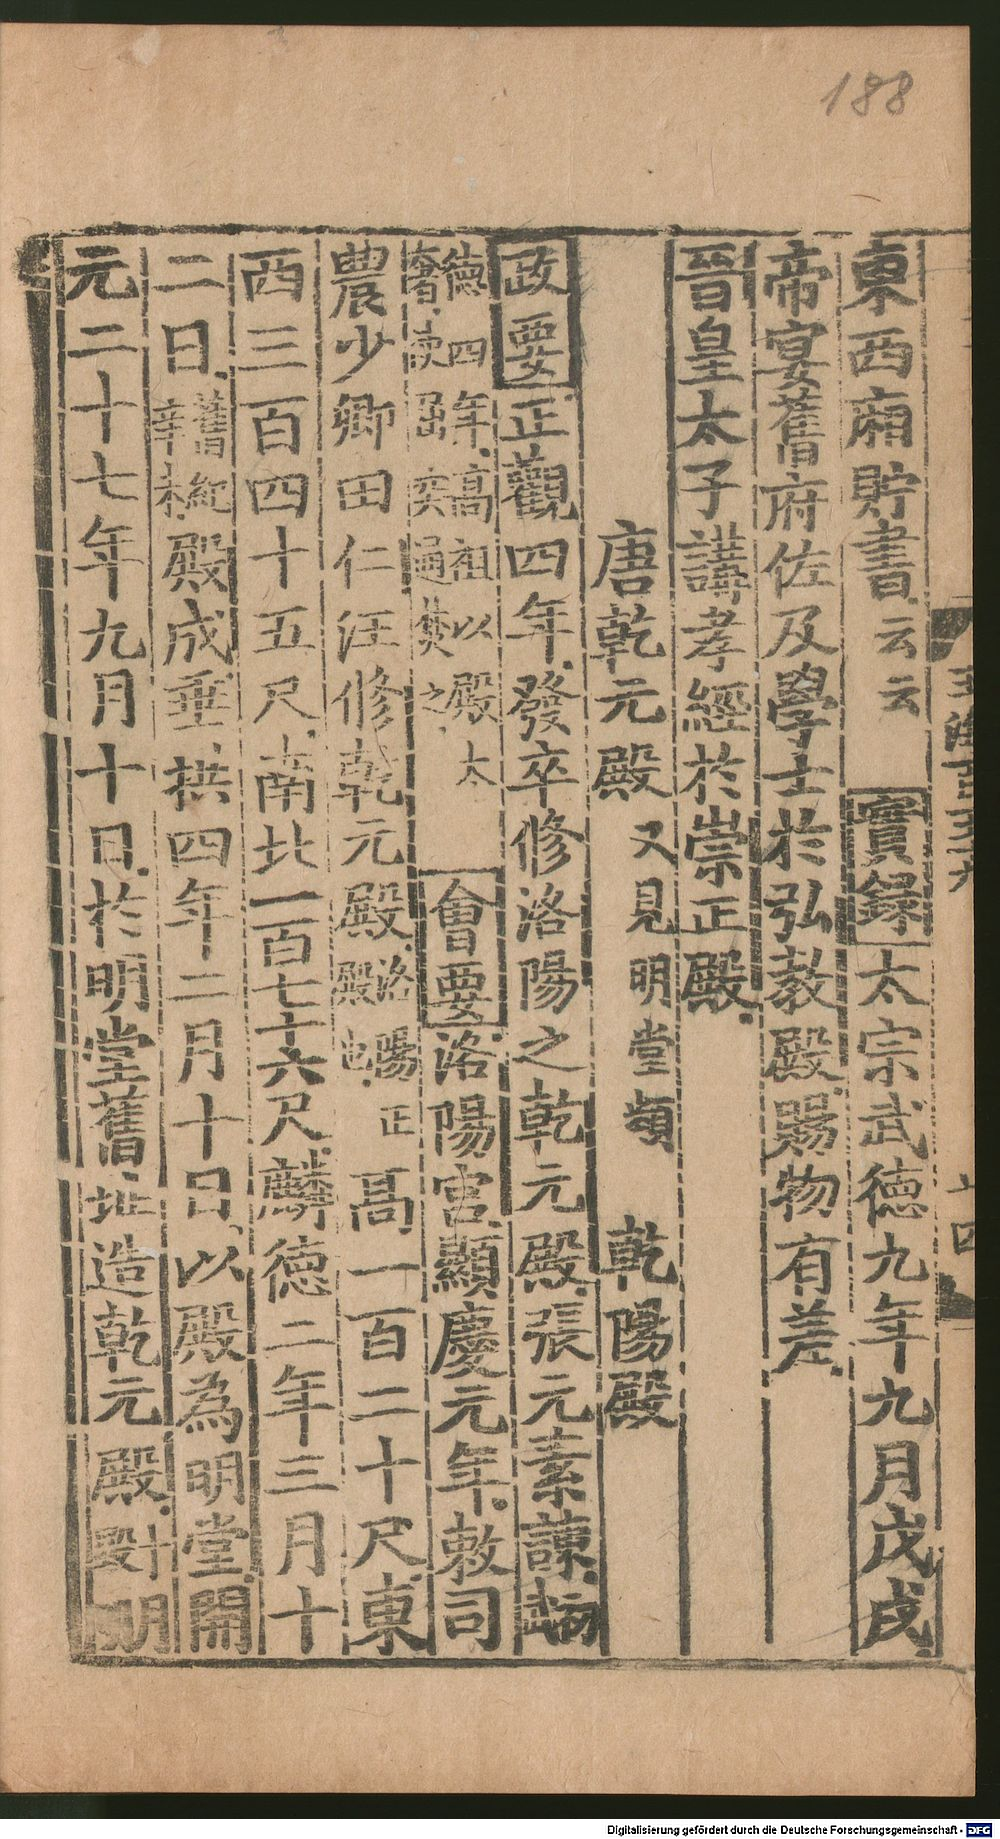 188
東西廂貯書云云 實録太宗武德九年九月戊戌
帝宴舊府佐及學士於弘教殿賜物有差
晉皇太子講孝經於崇正殿
唐乾元殿 又見明堂類 乾陽殿
政要正觀四年發卒修洛陽之乾元殿張元素諫 初武
德四年高祖以殿太
奢 屈突通焚之
會要洛陽宮顯慶元年敕司
農少卿田仁汪修乾元殿 洛陽正
殿也 高一百二十尺東
西三百四十五尺南北一百七十六尺麟德二年三月十
二日 舊紀
辛未 殿成垂拱四年二月十日以殿為明堂開
元二十七年九月十日於明堂舊址造乾元殿 十
明
玉海百五十九
十四
Digitalisierung gefördert durch die Deutsche Forschungsgemeinschaft - DFG